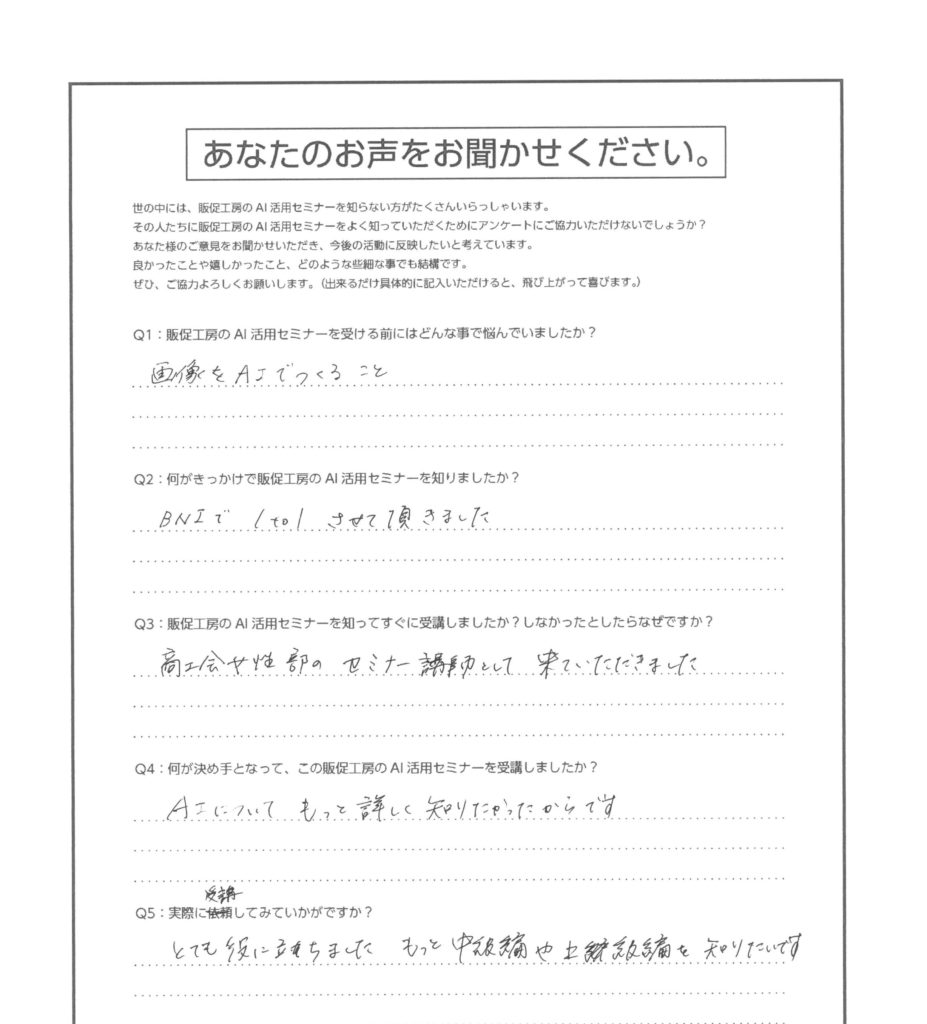 あなたのお声をお聞かせください。
世の中には、販促工房のAI活用セミナーを知らない方がたくさんいらっしゃいます。
その人たちに販促工房のAI活用セミナーをよく知っていただくためにアンケートにご協力いただけないでしょうか？
あなた様のご意見をお聞かせいただき、今後の活動に反映したいと考えています。
良かったことや嬉しかったこと、どのような些細な事でも結構です。
ぜひ、ご協力よろしくお願いします。（出来るだけ具体的に記入いただけると、飛び上がって喜びます。）
Q1：販促工房のAI活用セミナーを受ける前にはどんな事で悩んでいましたか？
画像をAIでつくること
Q2：何がきっかけで販促工房のAI活用セミナーを知りましたか？
BNIで 1to1 させて頂きました
Q3：販促工房のAI活用セミナーを知ってすぐに受講しましたか？しなかったとしたらなぜですか？
商工会女性部の セミナー講師として 来ていただきました
Q4：何が決め手となって、この販促工房のAI活用セミナーを受講しましたか？
AIについて もっと詳しく知りたかったからです
受講
Q5：実際に依頼してみていかがですか？
とても役に立ちました もっと中級編や上級編を知りたいです